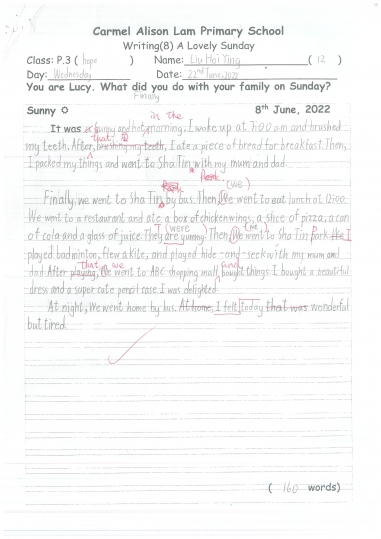 Carmel Alison Lam Primary School
Writing(8) A Lovely Sunday
Class: P.3 ( hope ) Name: Liu Hoi Ying ( 12 )
Day: Wednesday Date: 22nd June, 2022
You are Lucy. What did you do with your family on Sunday?
Finally
Sunny 8th June, 2022
in the
It was sunny and hot morning, I woke up at 7:00 am and brushed
that, I
my teeth. After brushing my teeth, I ate a piece of bread for breakfast. Then,
I packed my things and went to Sha Tin with my mum and dad.
Park.
Park (we)
Finally, we went to Sha Tin by bus. Then, We went to eat lunch at 12:00.
We went to a restaurant and ate a box of chicken wings, a slice of pizza, a can
(were) (we)
of cola and a glass of juice. They are yummy. Then, We went to Sha Tin Park the I
played badminton, flew a kite, and played hide-and-seek with my mum and
That we and
dad. After playing, We went to ABC shopping mall, bought things. I bought a beautiful
dress and a super cute pencil case. I was delighted.
At night, We went home by bus. At home, I felt today that was wonderful
but tired.
( 160 words)